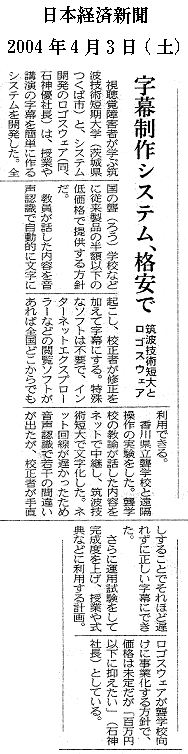 日本経済新聞
2004年4月3日（土）
字幕制作システム、格安で
筑波技術短大と
ロゴスウェア
視覚聴覚障害者が学ぶ筑
波技術短期大学（茨城県
つくば市）と、システム
開発のロゴスウェア（同、
石神優社長）は、授業や
講演の字幕を簡単に作る
システムを開発した。全
国の聾（ろう）学校など
に従来製品の半額以下の
低価格で提供する方針
だ。
教員が話した内容を音
声認識で自動的に文字に
起こし、校正者が修正を
加えて字幕にする。特殊
なソフトは不要で、イン
ターネットエクスプロー
ラーなどの閲覧ソフトが
あれば全国どこからでも
利用できる。
香川県立聾学校と遠隔
操作の実験をした。聾学
校の教諭が話した内容を
ネットで中継し、筑波技
術短大で文字化した。ネ
ット回線が遅かったため
音声認識で若干の間違い
が出たが、校正者が手直
しすることでそれほど遅
れずに正しい字幕にでき
た。
さらに運用試験をして
完成度を上げ、授業や式
典などに利用する計画。
ロゴスウェアが聾学校向
けに事業化する方針で、
価格は未定だが「百万円
以下に抑えたい」（石神
社長）としている。